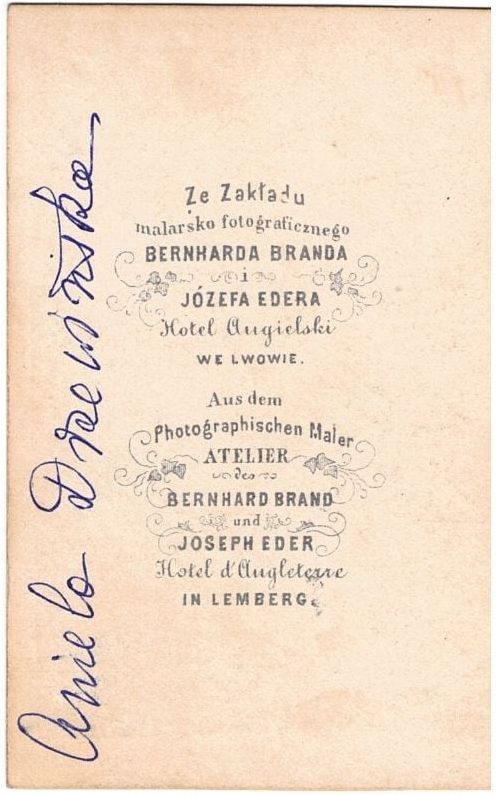 Ze Zakładu
malarsko fotograficznego
BERNHARDA BRANDA
i
JÓZEFA EDERA
Hotel Angielski
WE LWOWIE.
Aus dem
Photographischen Maler
ATELIER
des
BERNHARD BRAND
und
JOSEPH EDER
Hotel d'Angleterre
IN LEMBERG.
Aniela